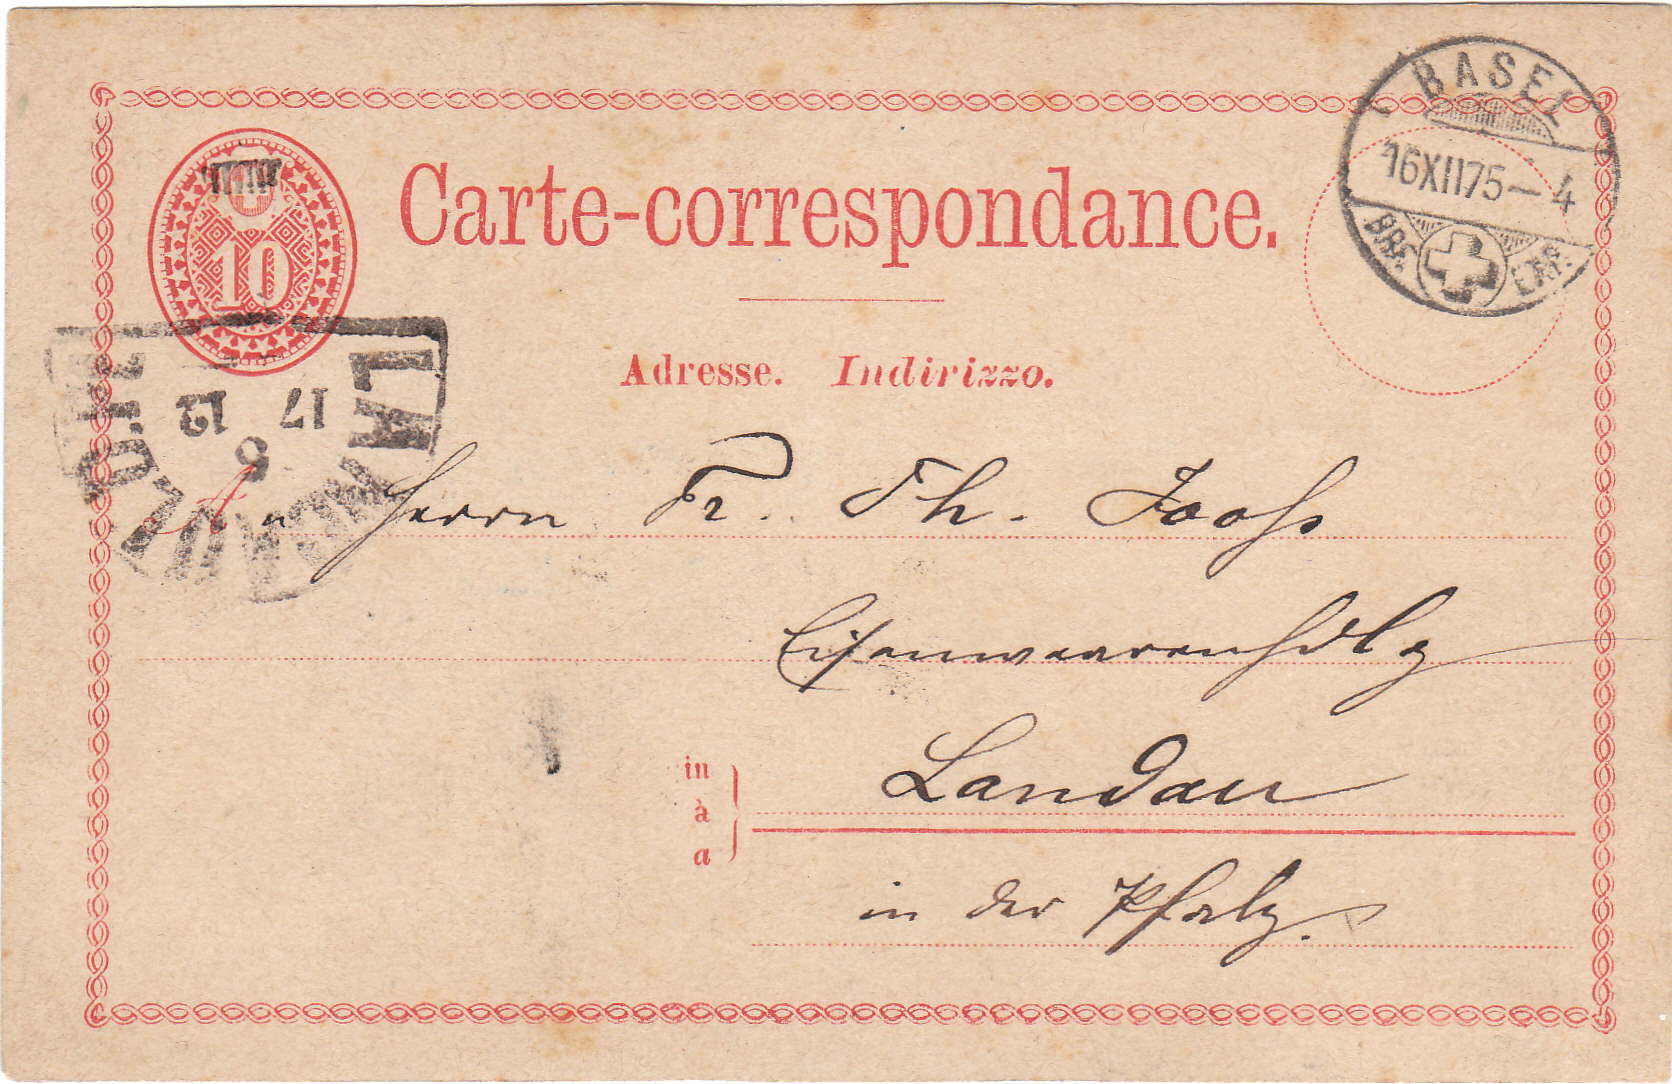 BASEL
16XII75-4
BRF. EXP.
10
Carte-correspondance.
Adresse. Indirizzo.
LANDAU I. D. PF.
17 12
6
An Herrn Fr. Th. Joohs
Eisenwaarenhdlg
in
à
a
Landau
in der Pfalz.